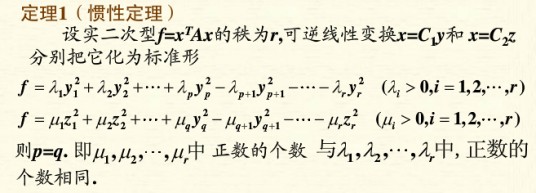 定理1（惯性定理）
设实二次型f=xᵀAx的秩为r,可逆线性变换x=C₁y和 x=C₂z
分别把它化为标准形
f = λ₁y₁² + λ₂y₂² + ⋯ + λₚyₚ² − λₚ₊₁yₚ₊₁² − ⋯ − λᵣyᵣ² (λᵢ > 0, i = 1,2,⋯,r)
f = μ₁z₁² + μ₂z₂² + ⋯ + μ_q y_q² − μ_{q+1}y_{q+1}² − ⋯ − μᵣzᵣ² (μᵢ > 0, i = 1,2,⋯,r)
则p=q. 即μ₁,μ₂,⋯,μᵣ中 正数的个数 与λ₁,λ₂,⋯,λᵣ中, 正数的
个数相同.